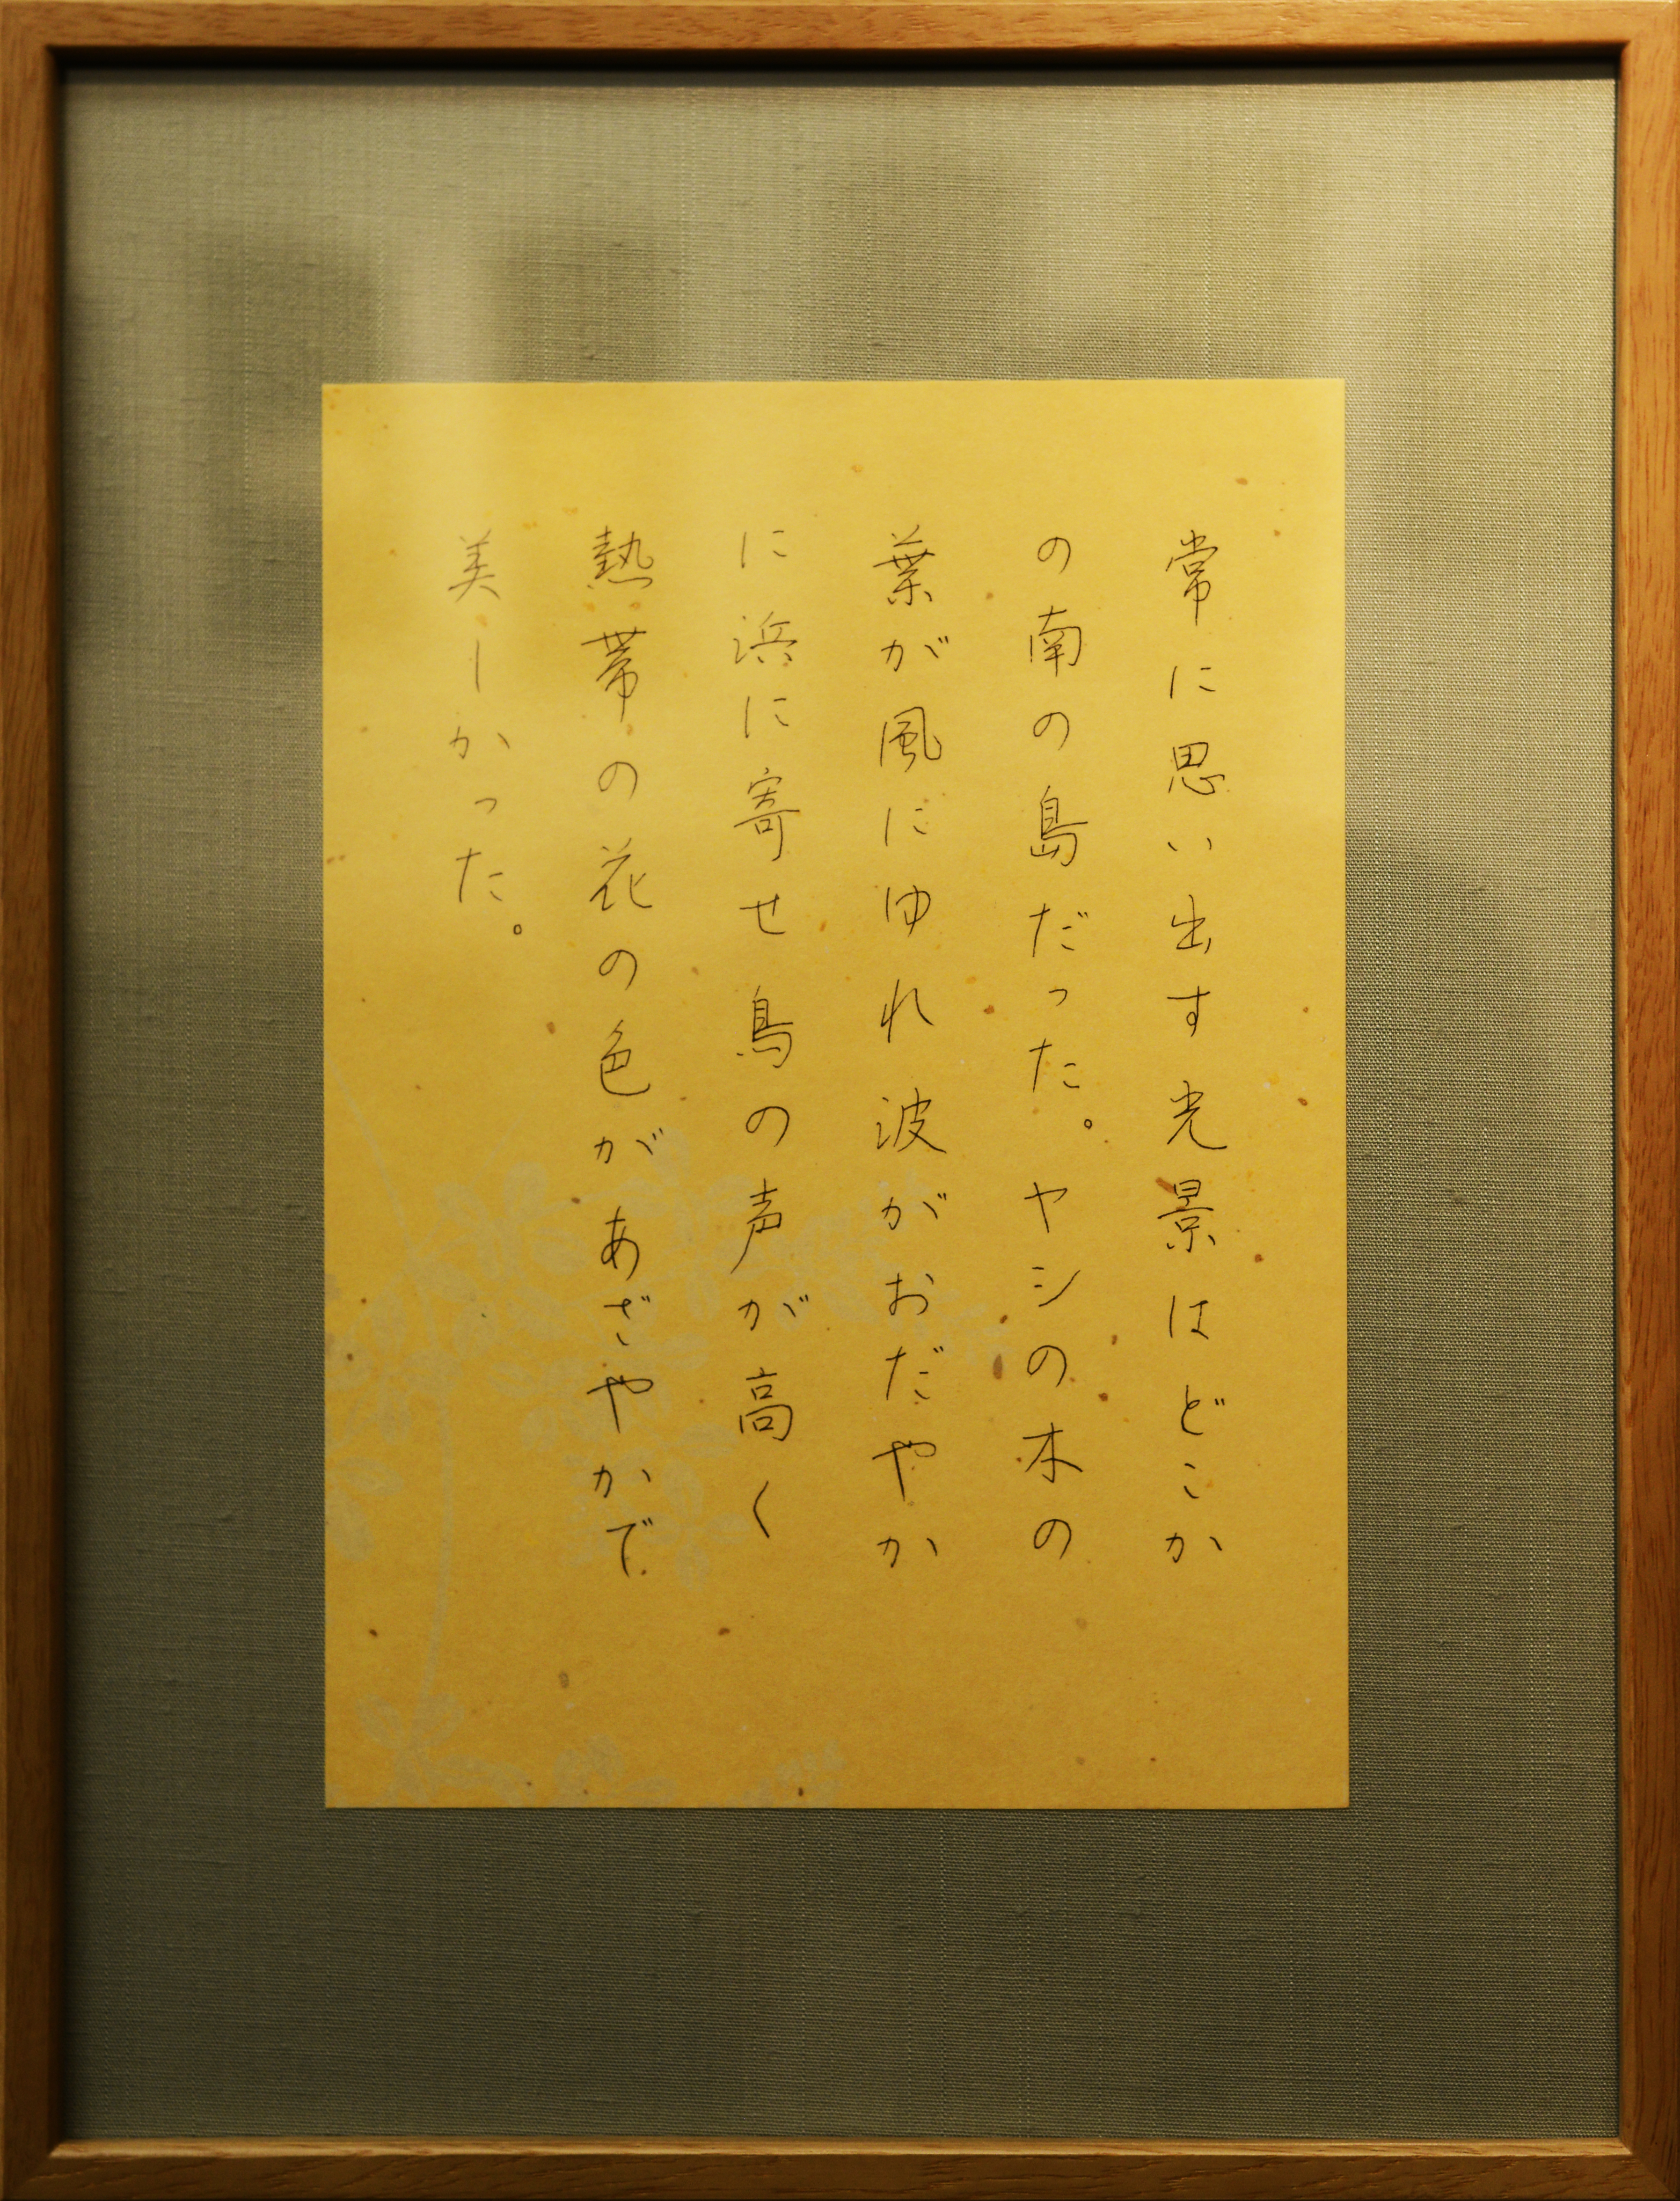 常に思い出す光景はどこか
の南の島だった。ヤシの木の
葉が風にゆれ波がおだやか
に浜に寄せ鳥の声が高く
熱帯の花の色があざやかで
美しかった。